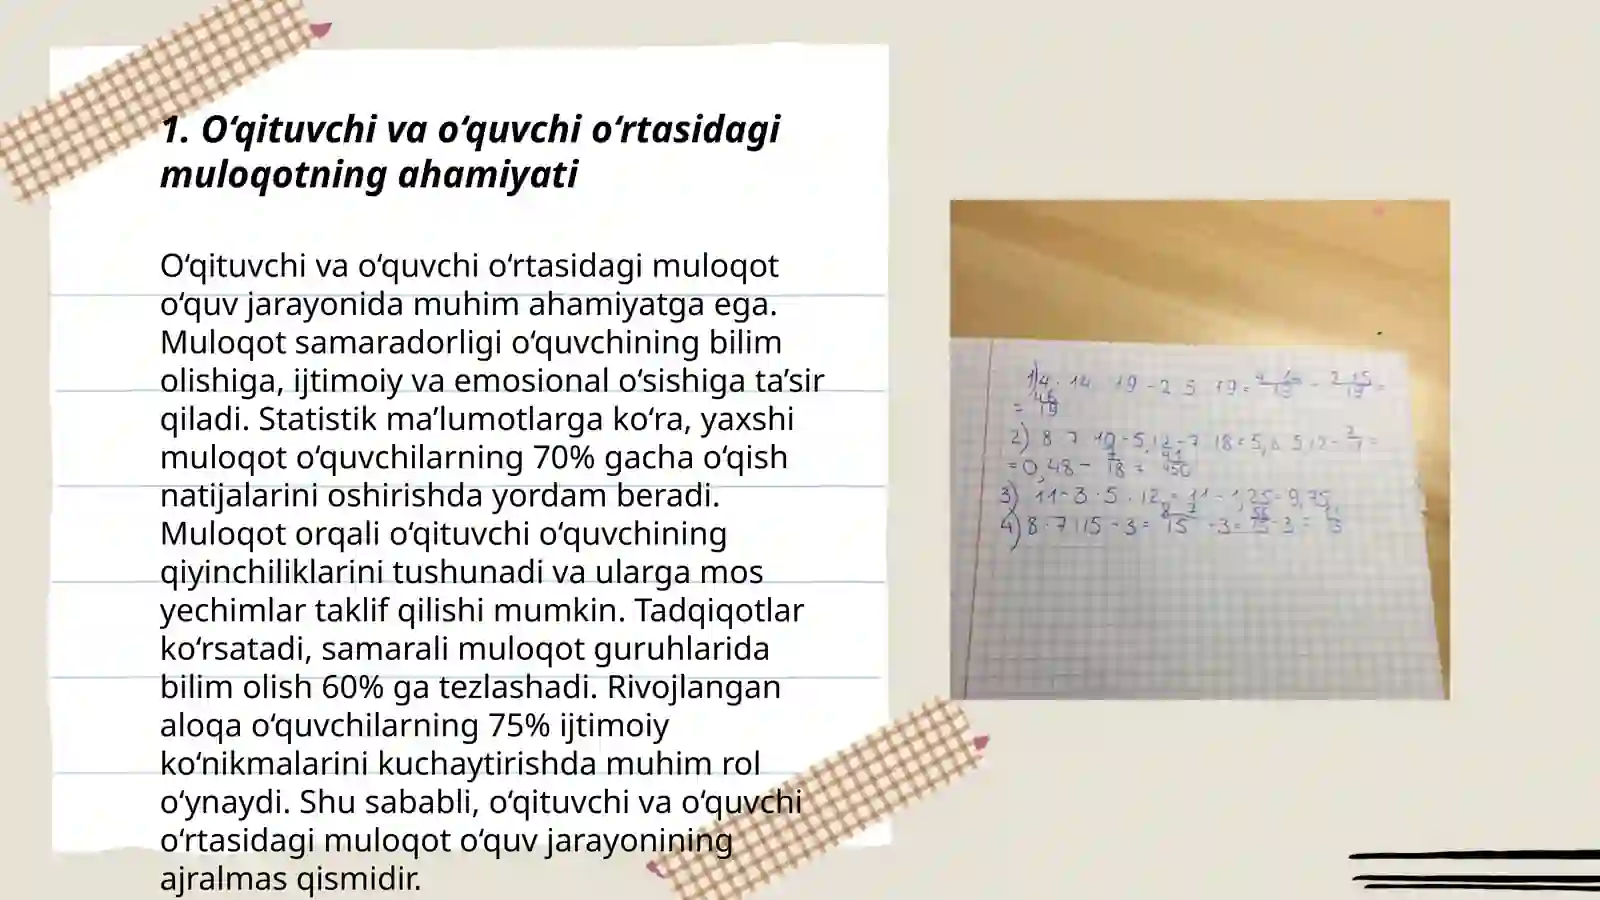 1. O‘qituvchi va o‘quvchi o‘rtasidagi
muloqotning ahamiyati
O‘qituvchi va o‘quvchi o‘rtasidagi muloqot
o‘quv jarayonida muhim ahamiyatga ega.
Muloqot samaradorligi o‘quvchining bilim
olishiga, ijtimoiy va emosional o‘sishiga ta’sir
qiladi. Statistik ma’lumotlarga ko‘ra, yaxshi
muloqot o‘quvchilarning 70% gacha o‘qish
natijalarini oshirishda yordam beradi.
Muloqot orqali o‘qituvchi o‘quvchining
qiyinchiliklarini tushunadi va ularga mos
yechimlar taklif qilishi mumkin. Tadqiqotlar
ko‘rsatadi, samarali muloqot guruhlarida
bilim olish 60% ga tezlashadi. Rivojlangan
aloqa o‘quvchilarning 75% ijtimoiy
ko‘nikmalarini kuchaytirishda muhim rol
o‘ynaydi. Shu sababli, o‘qituvchi va o‘quvchi
o‘rtasidagi muloqot o‘quv jarayonining
ajralmas qismidir.
3) 11-3·5·12=11-1,25=9,75